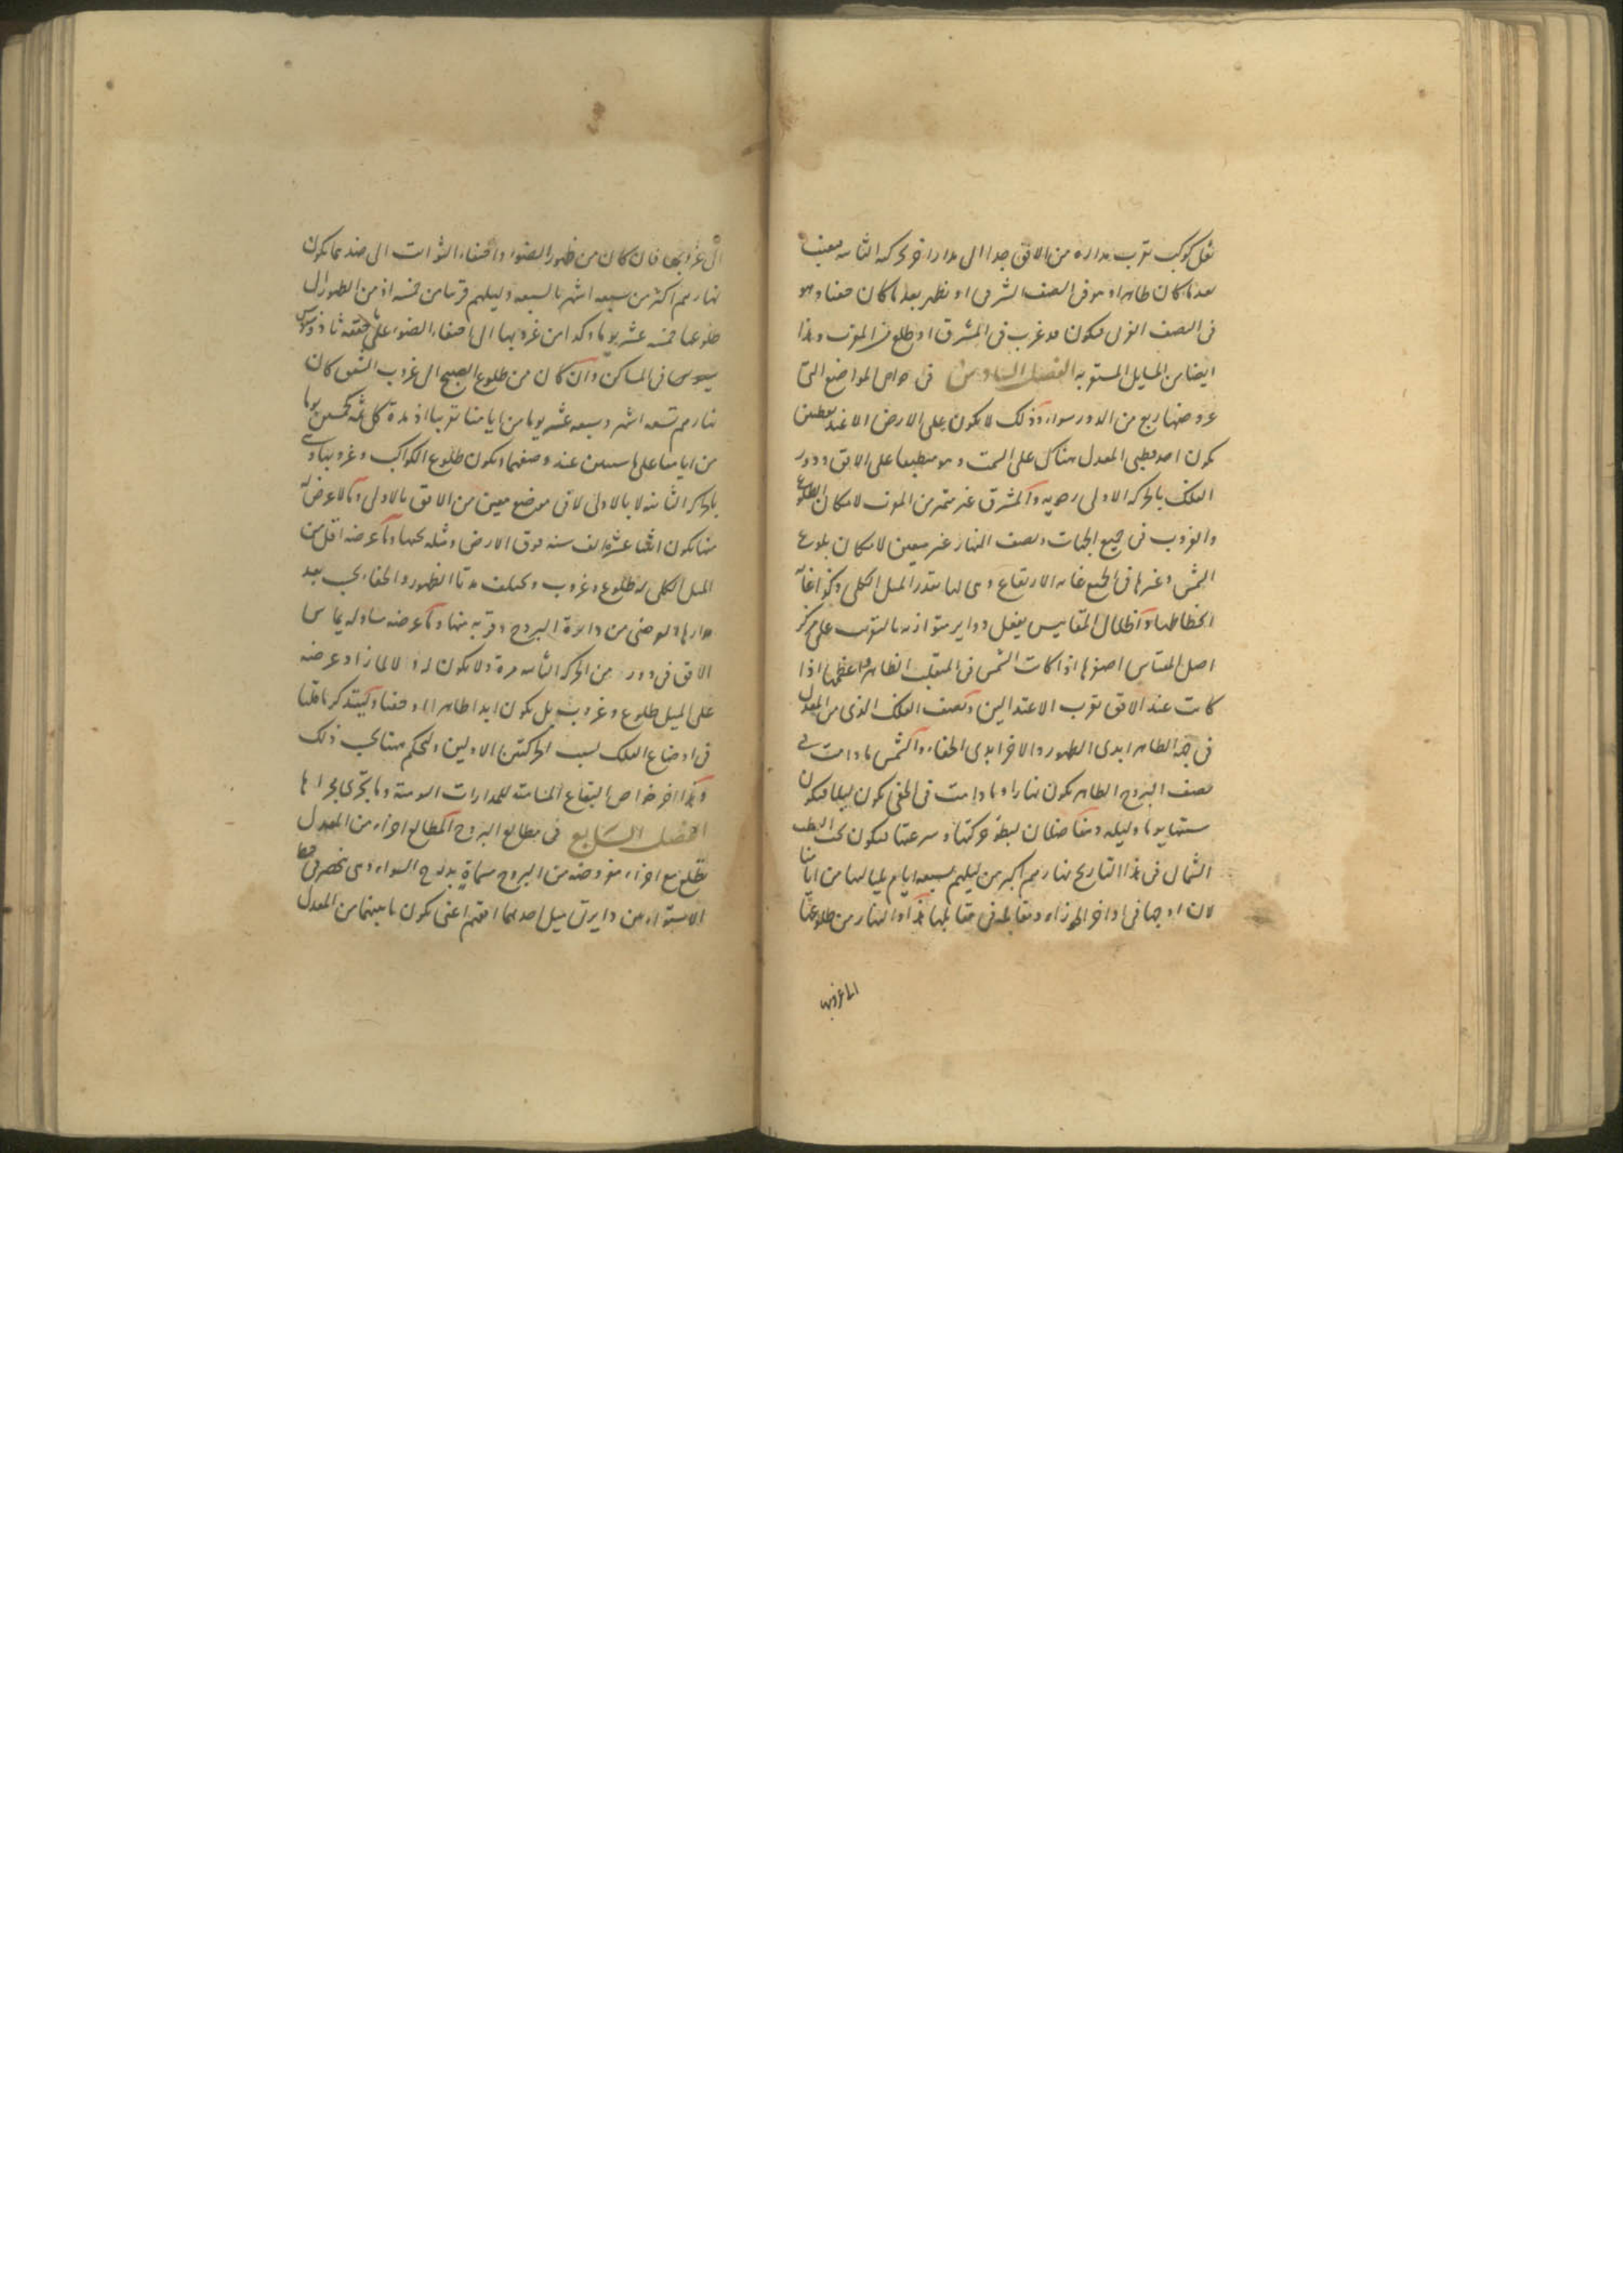 نقل كوكب بقرب مداره من الافق جدا الى مدار اخر بحركته الثانيه فيغيب
بعد ما كان ظاهرا وهو فى النصف الشرقى او يظهر بعد ما كان خفيا وهو
فى النصف الغربى فيكون قد غرب فى المشرق او طلع فى المغرب وهذا
ايضا من المسايل المستغربه الفصل السادس فى خواص المواضع التى
عروضها ربع من الدور سواء وذلك لا يكون على الارض الا عند نقطتين
يكون احد قطبى المعدل هناك على السمت وهو منطبعا على الافق ودور
الفلك بالحركه الاولى رحويه والمشرق غير متميز من المغرب لامكان الطلوع
والغروب فى جميع الجهات ونصف النهار غير معين لامكان بلوغ
الشمس وغيرها فى الجميع غايه الارتفاع وهى لها بقدر الميل الكلى وكذا غاية
انحطاطها واظلال المقاييس يفعل دواير متوازيه بالتقريب على مركز
اصل المقياس اصغرها اذا كانت الشمس فى المنقلب الظاهر واعظمها اذا
كانت عند الافق بقرب الاعتدالين ونصف الفلك الذى من المعدل
فى جهة الظاهر ابدى الظهور والاخر ابدى الخفاء والشمس ما دامت فى
نصف البروج الظاهر يكون نهارا وما دامت فى الخفى يكون ليلا فيكون
سنتها يوما وليله ويتفاضلان لبطؤ حركتها وسرعتها فيكون تحت القطب
الشمالى فى هذا التاريخ نهارهم اكبر من ليلهم بسبعه ايام بلياليها من ايامنا
لان اوجها فى اواخر الجوزاء ومقابله فى مقابلها هذا والنهار من طلوعها
الى غروبها
الى غروبها فان كان من ظهور الضوء واختفاء الثوابت الى ضدهما يكون
نهارهم اكثر من سبعه اشهر بالسبعه وليلهم قريبا من خمسه اذ من الظهور الى
طلوعها خمسه عشر يوما وكذا من غروبها الى اختفاء الضوء على ما حققه ثاوذوسيوس
فى المساكن وان كان من طلوع الصبح الى غروب الشفق كان
نهارهم تسعه اشهر وسبعه عشر يوما من ايامنا تقريبا اذ مدة كل ثمه خمسين يوما
من ايامنا على ما سيبين عند وصفهما ويكون طلوع الكواكب وغروبها
بالحركه الثانيه لا بالاولى لا فى موضع معين من الافق بالاولى وما لا عرض له
منها يكون اثنا عشر الف سنه فوق الارض ومثله تحتها وما عرضه اقل من
الميل الكلى له طلوع وغروب ويختلف مدتا الظهور والخفاء بحسب بعد
مدارها العرضى من دائرة البروج وقربه منها وما عرضه مساو له يماس
الافق فى دور من الحركه الثانيه مرة ولا يكون له ولا لما زاد عرضه
على الميل طلوع وغروب بل يكون ابدا ظاهرا او خفيا وليتذكر ما قلنا
فى اوضاع الفلك بسبب الحركتين الاوليين وليحكم هنا بحسب ذلك
وهذا اخر خواص البقاع المسامته للمدارات اليوميه وما يجرى مجراها
الفصل السابع فى مطالع البروج المطالع اجزاء من المعدل
تطلع مع اجزاء مفروضه من البروج مسماة بدرج السواء وهى تنحصر فى خط
الاستواء بين دايرتى ميل احدهما افقهم اعنى يكون ما بينهما من المعدل